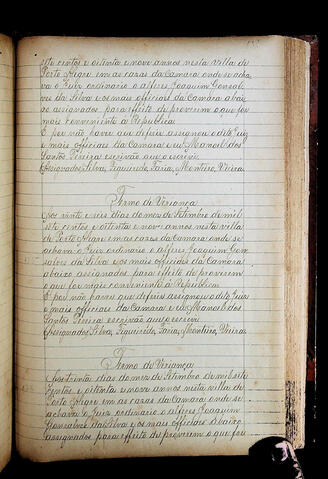 sete centos e oitenta e nove annos nesta villa de
Porto Alegre em as cazas da Camara onde se acha
va o Juiz ordinario o alferes Joaquim Gonsal
ves da Silva e os mais officiais da Camara abai
xo assignados para effeito de proverem o que for
mais conveniente á Republica
E por não haver que deferir assignou o dito Juiz
e mais officiais da Camara e eu Manoel dos
Santos Pereira escrivão que o escrevi
Assignados Silva, Figueiredo, Faria, Monteiro, Vieira
Termo de Vereança
Aos vinte e seis dias do mez de Setembro de mil
sete centos e oitenta e nove annos nesta villa
de Porto Alegre em as cazas da Camara onde se
achava o Juiz ordinario o alferes Joaquim Gon
salves da Silva e os mais officiais da Camara
abaixo assignados para effeito de proverem
o que for mais conveniente á Republica
E por não haver que deferir assignou o dito Juiz
e mais officiais da Camara e eu Manoel dos
Santos Pereira escrivão que o escrevi
Assignados Silva, Figueiredo, Faria, Monteiro, Vieira
Termo de Vereança
Aos trinta dias do mez de Setembro de mil sete
centos e oitenta e nove annos nesta villa de
Porto Alegre em as cazas da Camara onde se
achava o Juiz ordinario o alferes Joaquim
Gonsalves da Silva e os mais officiais abaixo
assignados para effeito de proverem o que for